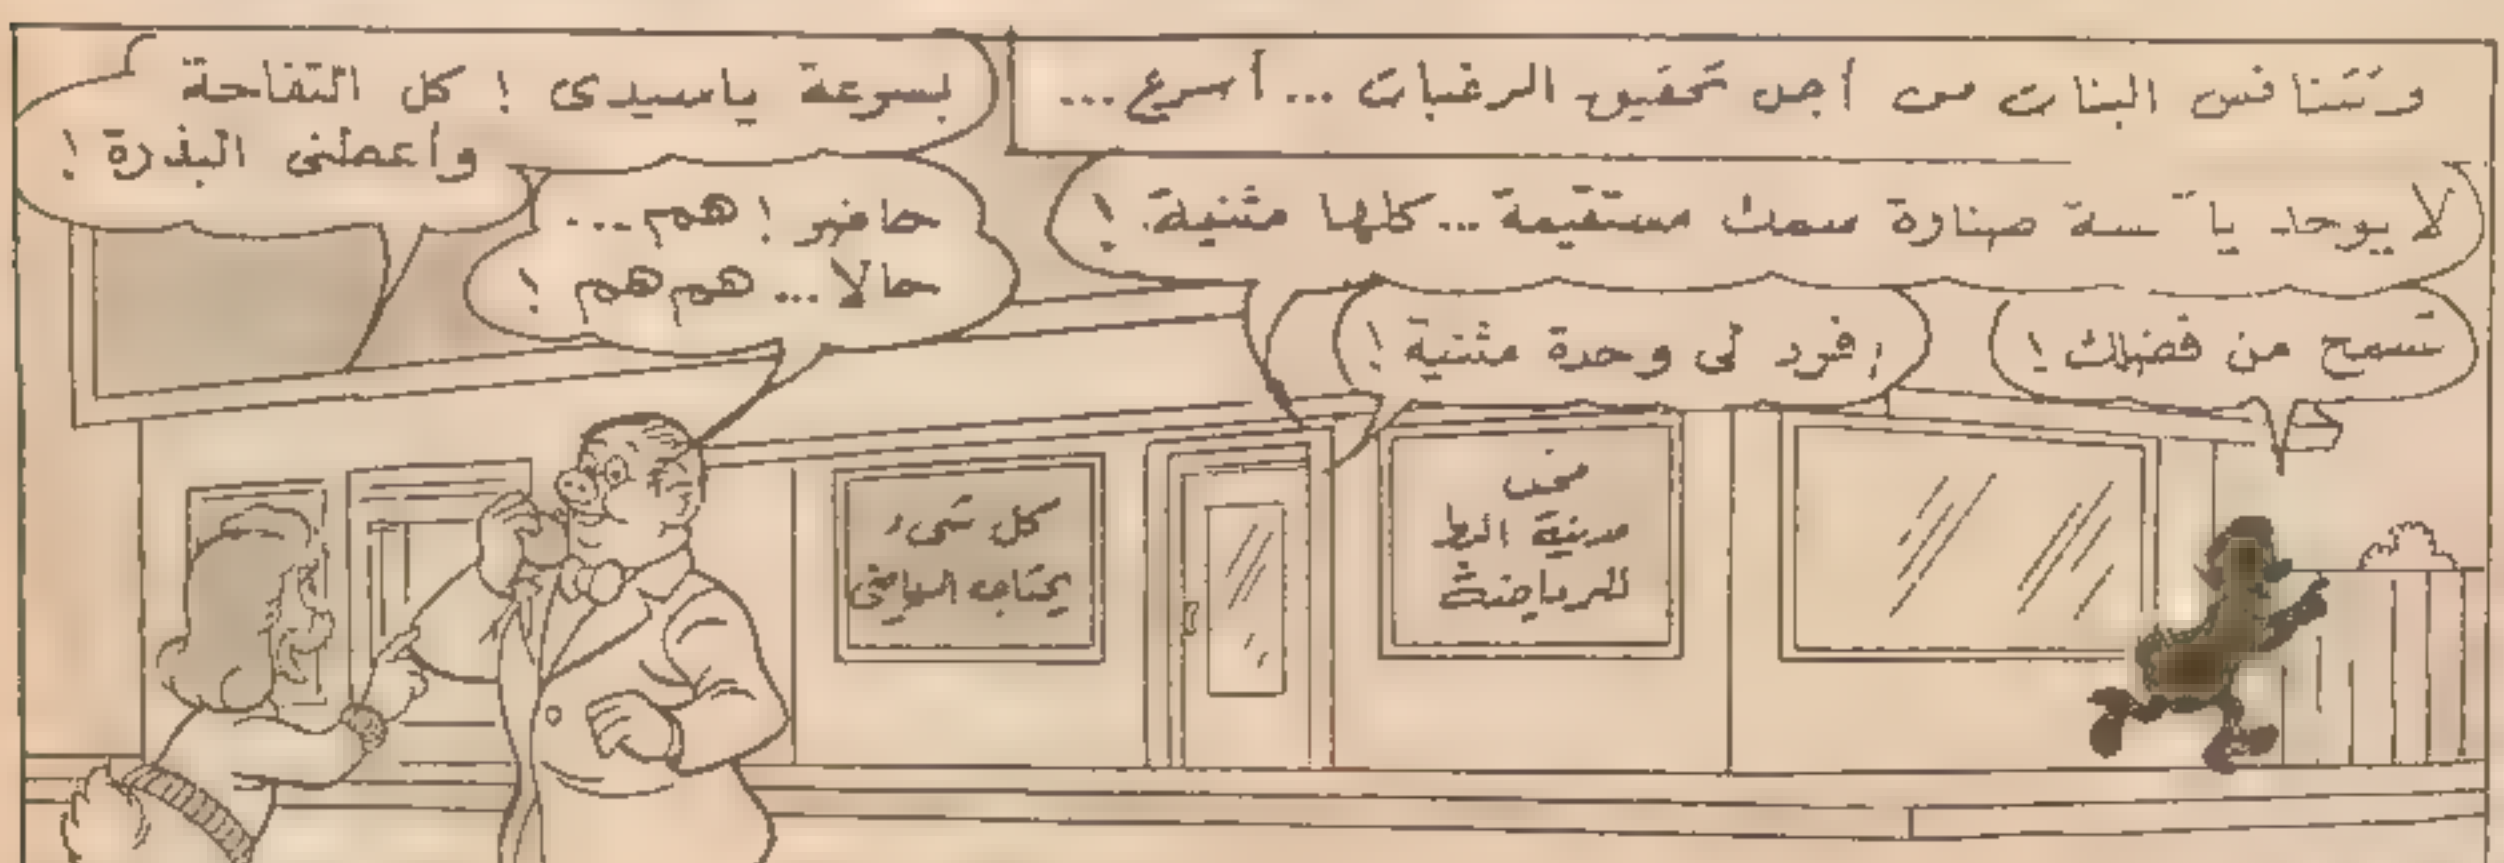 وتتنافس البنات من أجل تحقيق الرغبات ... أسرع ...
لا يوجد يا آنسة صنارة سمك مستقيمة ... كلها مثنية !
تسمح من فضلك !
افرد لى وحدة مثنية !
بسرعة ياسيدى ! كل التفاحة
وأعطنى البذرة !
حاضر ! هم ...
حالا ... هم هم !
كل شىء
للرياضة